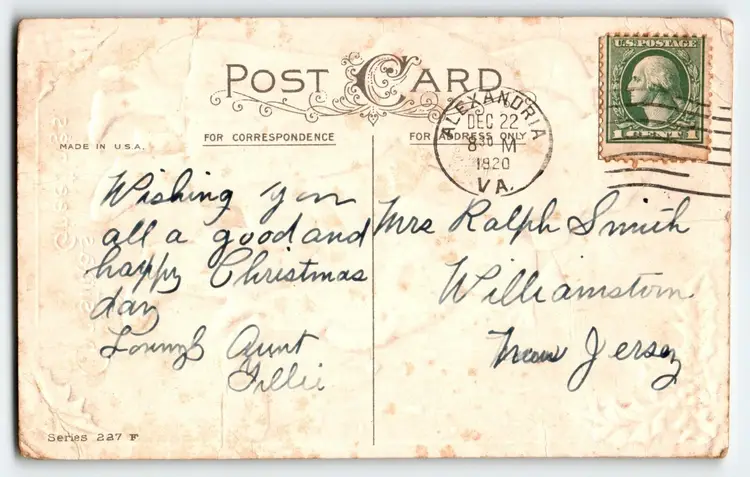 POST CARD
FOR CORRESPONDENCE
FOR ADDRESS ONLY
MADE IN U.S.A.
U.S. POSTAGE
1 CENT 1
ALEXANDRIA
DEC 22
8 30 M
1920
VA.
Wishing you
all a good and
happy Christmas
day
Aunt
Mrs Ralph Smith
Williamstown
New Jersey
Series 227 F